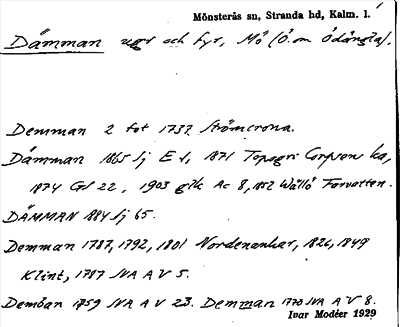 Mönsterås sn, Stranda hd, Kalm. l.
Dämman ugr och fyr, Mö (Ö. om Ödängla).
Demman 2 fot 1737 Strömcrona.
Dämman 1865 Sj E 1, 1871 Topogr. Corpsens ka,
1874 GS 22, 1903 gtk Ac 8, 1852 Wållö Farvatten.
DÄMMAN 1884 Sj 65.
Demman 1787, 1792, 1801 Nordenankar, 1826, 1849
Klint, 1787 NA A V 5.
Demöan 1759 NA A V 23. Demman 1770 NA A V 8.
Ivar Modéer 1929